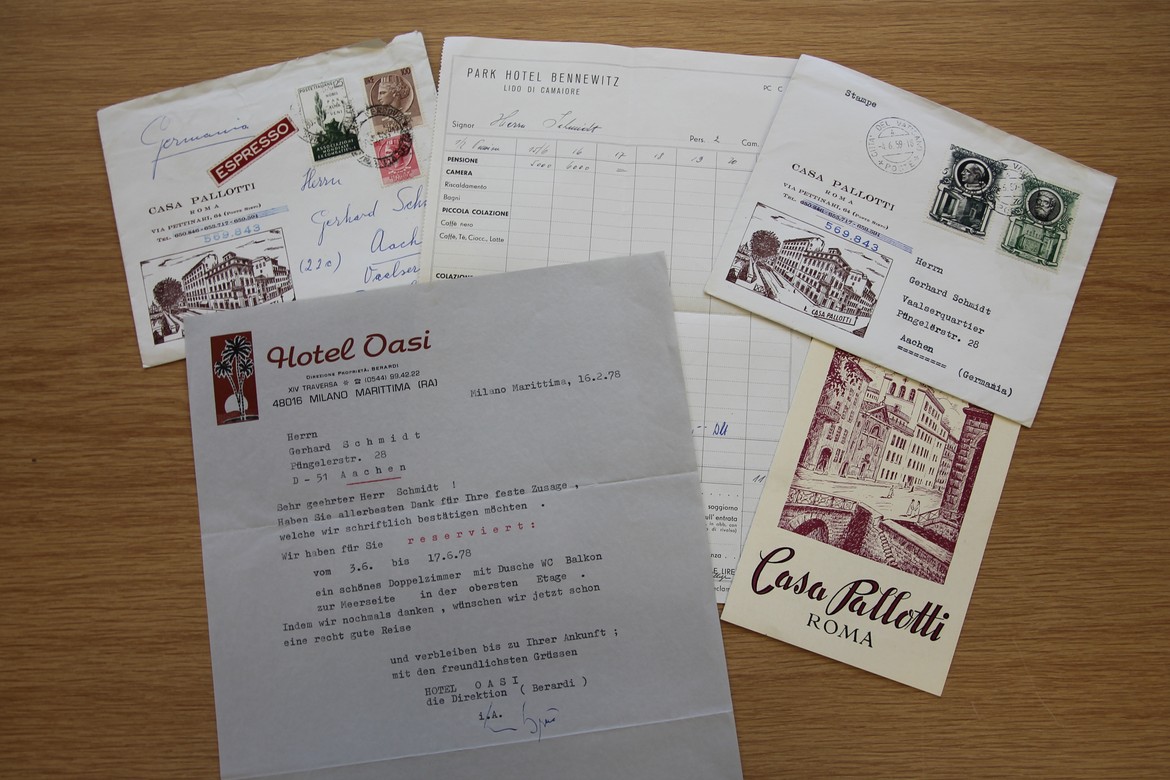 Germania
ESPRESSO
POSTE ITALIANE
CASA PALLOTTI
ROMA
VIA PETTINARI, 64 (Ponte Sisto)
TEL. 650.846 - 653.717 - 650.501
569.843
Herrn
Gerhard Sch
Aach
(22c)
Vaalser
PARK HOTEL BENNEWITZ
LIDO DI CAMAIORE
PC. C
Signor Herrn Schmidt
Pers. 2 Cam.
15/6 16 17 18 19 20
PENSIONE
CAMERA
Riscaldamento
Bagni
PICCOLA COLAZIONE
Caffè nero
Caffè, Tè, Ciocc., Latte
COLAZIONE
soggiorno
dell'entrata
LIRE
Stampe
4.6.59
CASA PALLOTTI
ROMA
VIA PETTINARI, 64 (Ponte Sisto)
TEL. 650.846 - 653.717 - 650.501
569.843
CASA PALLOTTI
Herrn
Gerhard Schmidt
Vaalserquartier
Püngelerstr. 28
Aachen
(Germania)
Hotel Oasi
DIREZIONE PROPRIETÀ, BERARDI
XIV TRAVERSA ☎ (0544) 99.42.22
48016 MILANO MARITTIMA (RA)
Milano Marittima, 16.2.78
Herrn
Gerhard S c h m i d t
Püngelerstr. 28
D - 51 A a c h e n
Sehr geehrter Herr Schmidt !
Haben Sie allerbesten Dank für Ihre feste Zusage ,
welche wir schriftlich bestätigen möchten .
Wir haben für Sie r e s e r v i e r t :
vom 3.6. bis 17.6.78
ein schönes Doppelzimmer mit Dusche WC Balkon
zur Meerseite in der obersten Etage .
Indem wir nochmals danken , wünschen wir jetzt schon
eine recht gute Reise
und verbleiben bis zu Ihrer Ankunft ;
mit den freundlichsten Grüssen
HOTEL O A S I
die Direktion ( Berardi )
i.A.
Casa Pallotti
ROMA